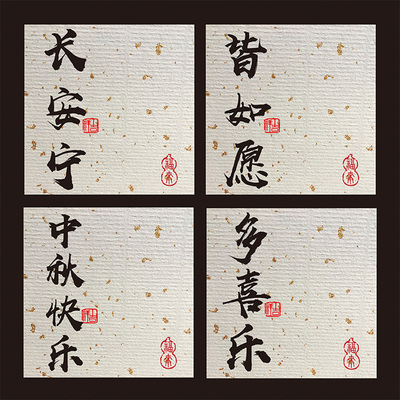 长安宁
皆如愿
中秋快乐
多喜乐